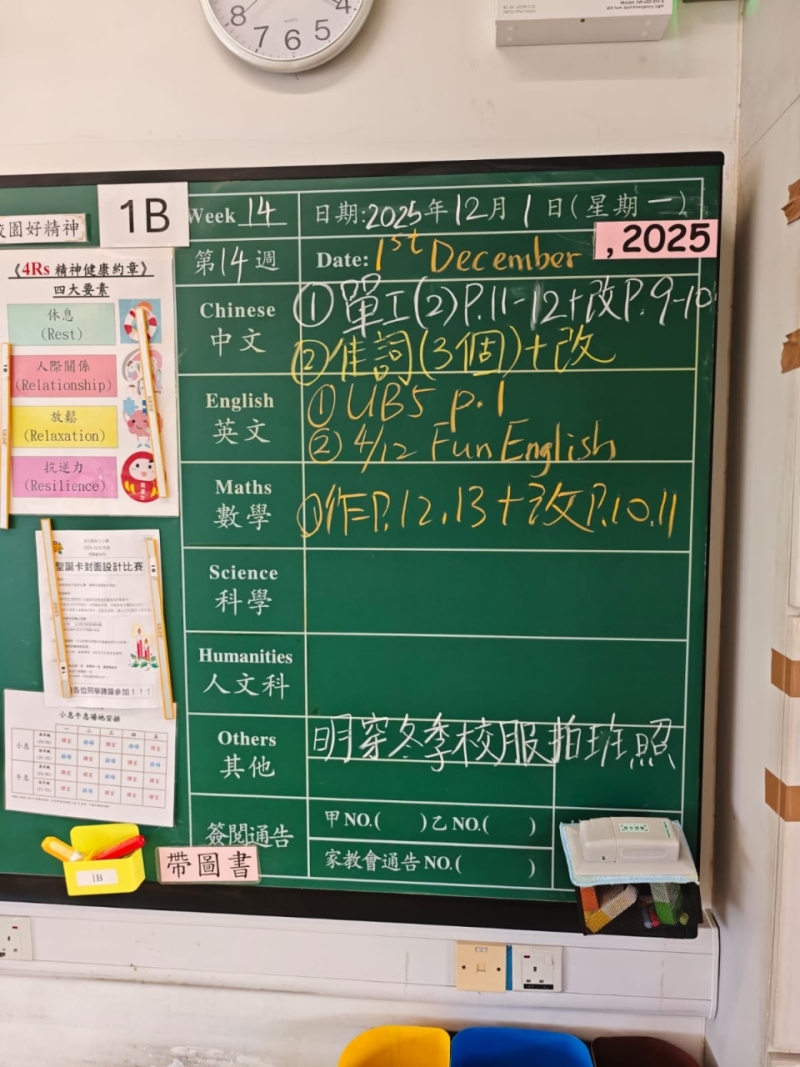 8 7 6 5 4
QUARTZ
校園好精神
1B
Week 14
日期:2025年12月1日(星期一)
第14週
Date: 1st December
, 2025
《4Rs 精神健康約章》
四大要素
休息
(Rest)
人際關係
(Relationship)
放鬆
(Relaxation)
抗逆力
(Resilience)
Chinese
中文
①單工(2)P.11-12+改P.9-10
②佳詞(3個)+改
English
英文
①UB5 p.1
②4/12 Fun English
Maths
數學
①作P.12,13+改P.10,11
Science
科學
Humanities
人文科
Others
其他
明穿冬季校服拍班照
簽閱通告
甲NO.( )乙NO.( )
家教會通告NO.( )
聖誕卡封面設計比賽
各位同學踴躍參加！！！
小息午息場地安排
一 二 三 四 五
小息
午息
1B
帶圖書